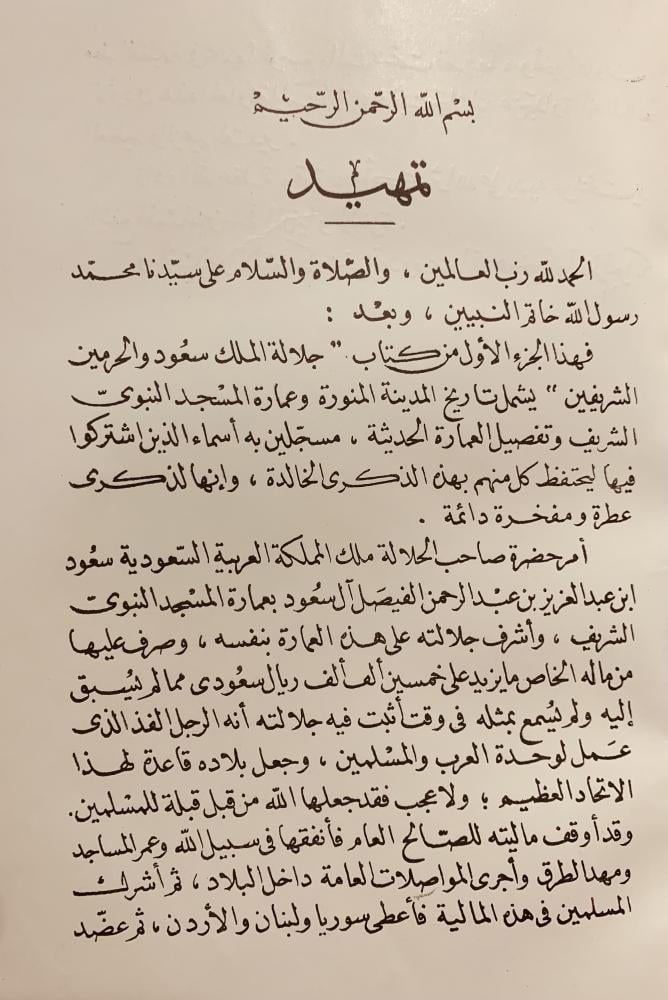 بسم الله الرحمن الرحيم
تمهيد
الحمد لله رب العالمين ، والصّلاة والسّلام على سيّدنا محمّد
رسول الله خاتم النبيين ، وبعْد :
فهذا الجزء الأول من كتاب " جلالة الملك سعُود والحرمين
الشريفين " يشمل تاريخ المدينة المنورة وعمارة المسْجد النبويّ
الشريف وتفصيل العمارة الحديثة ، مسجّلين به أسماء الذين اشتركوا
فيها ليحتفظ كل منهم بهذه الذكرى الخالدة ، وإنها لذكرى
عطرة ومفخرة دائمة .
أمر حضرة صاحب الجلالة ملك المملكة العربية السّعودية سعُود
ابن عبد العزيز بن عبْد الرحمن الفيصَل آل سعُود بعمارة المسْجد النبويّ
الشريف ، وأشرف جلالته على هذه العمارة بنفسه ، وصرف عليها
من ماله الخاص ما يزيد على خمسين ألف ألف ريال سعُودى مما لم يُسبق
إليه ولم يُسمع بمثله فى وقت أثبت فيه جلالته أنه الرجل الفذ الذى
عمَل لوحدة العرب والمسْلمين ، وجعل بلاده قاعدة لهذا
الاتحاد العظيم ؛ ولا عجب فقد جعلها الله من قبل قبلة للمسْلمين .
وقد أوقف ماليته للصّالح العام فأنفقها فى سبيل الله وعمر المساجد
ومهد الطرق وأجرى المواصلات العامة داخل البلاد ، ثم أشرك
المسلمين فى هذه المالية فأعطى سوريا ولبنان والأردن ، ثم عضّد